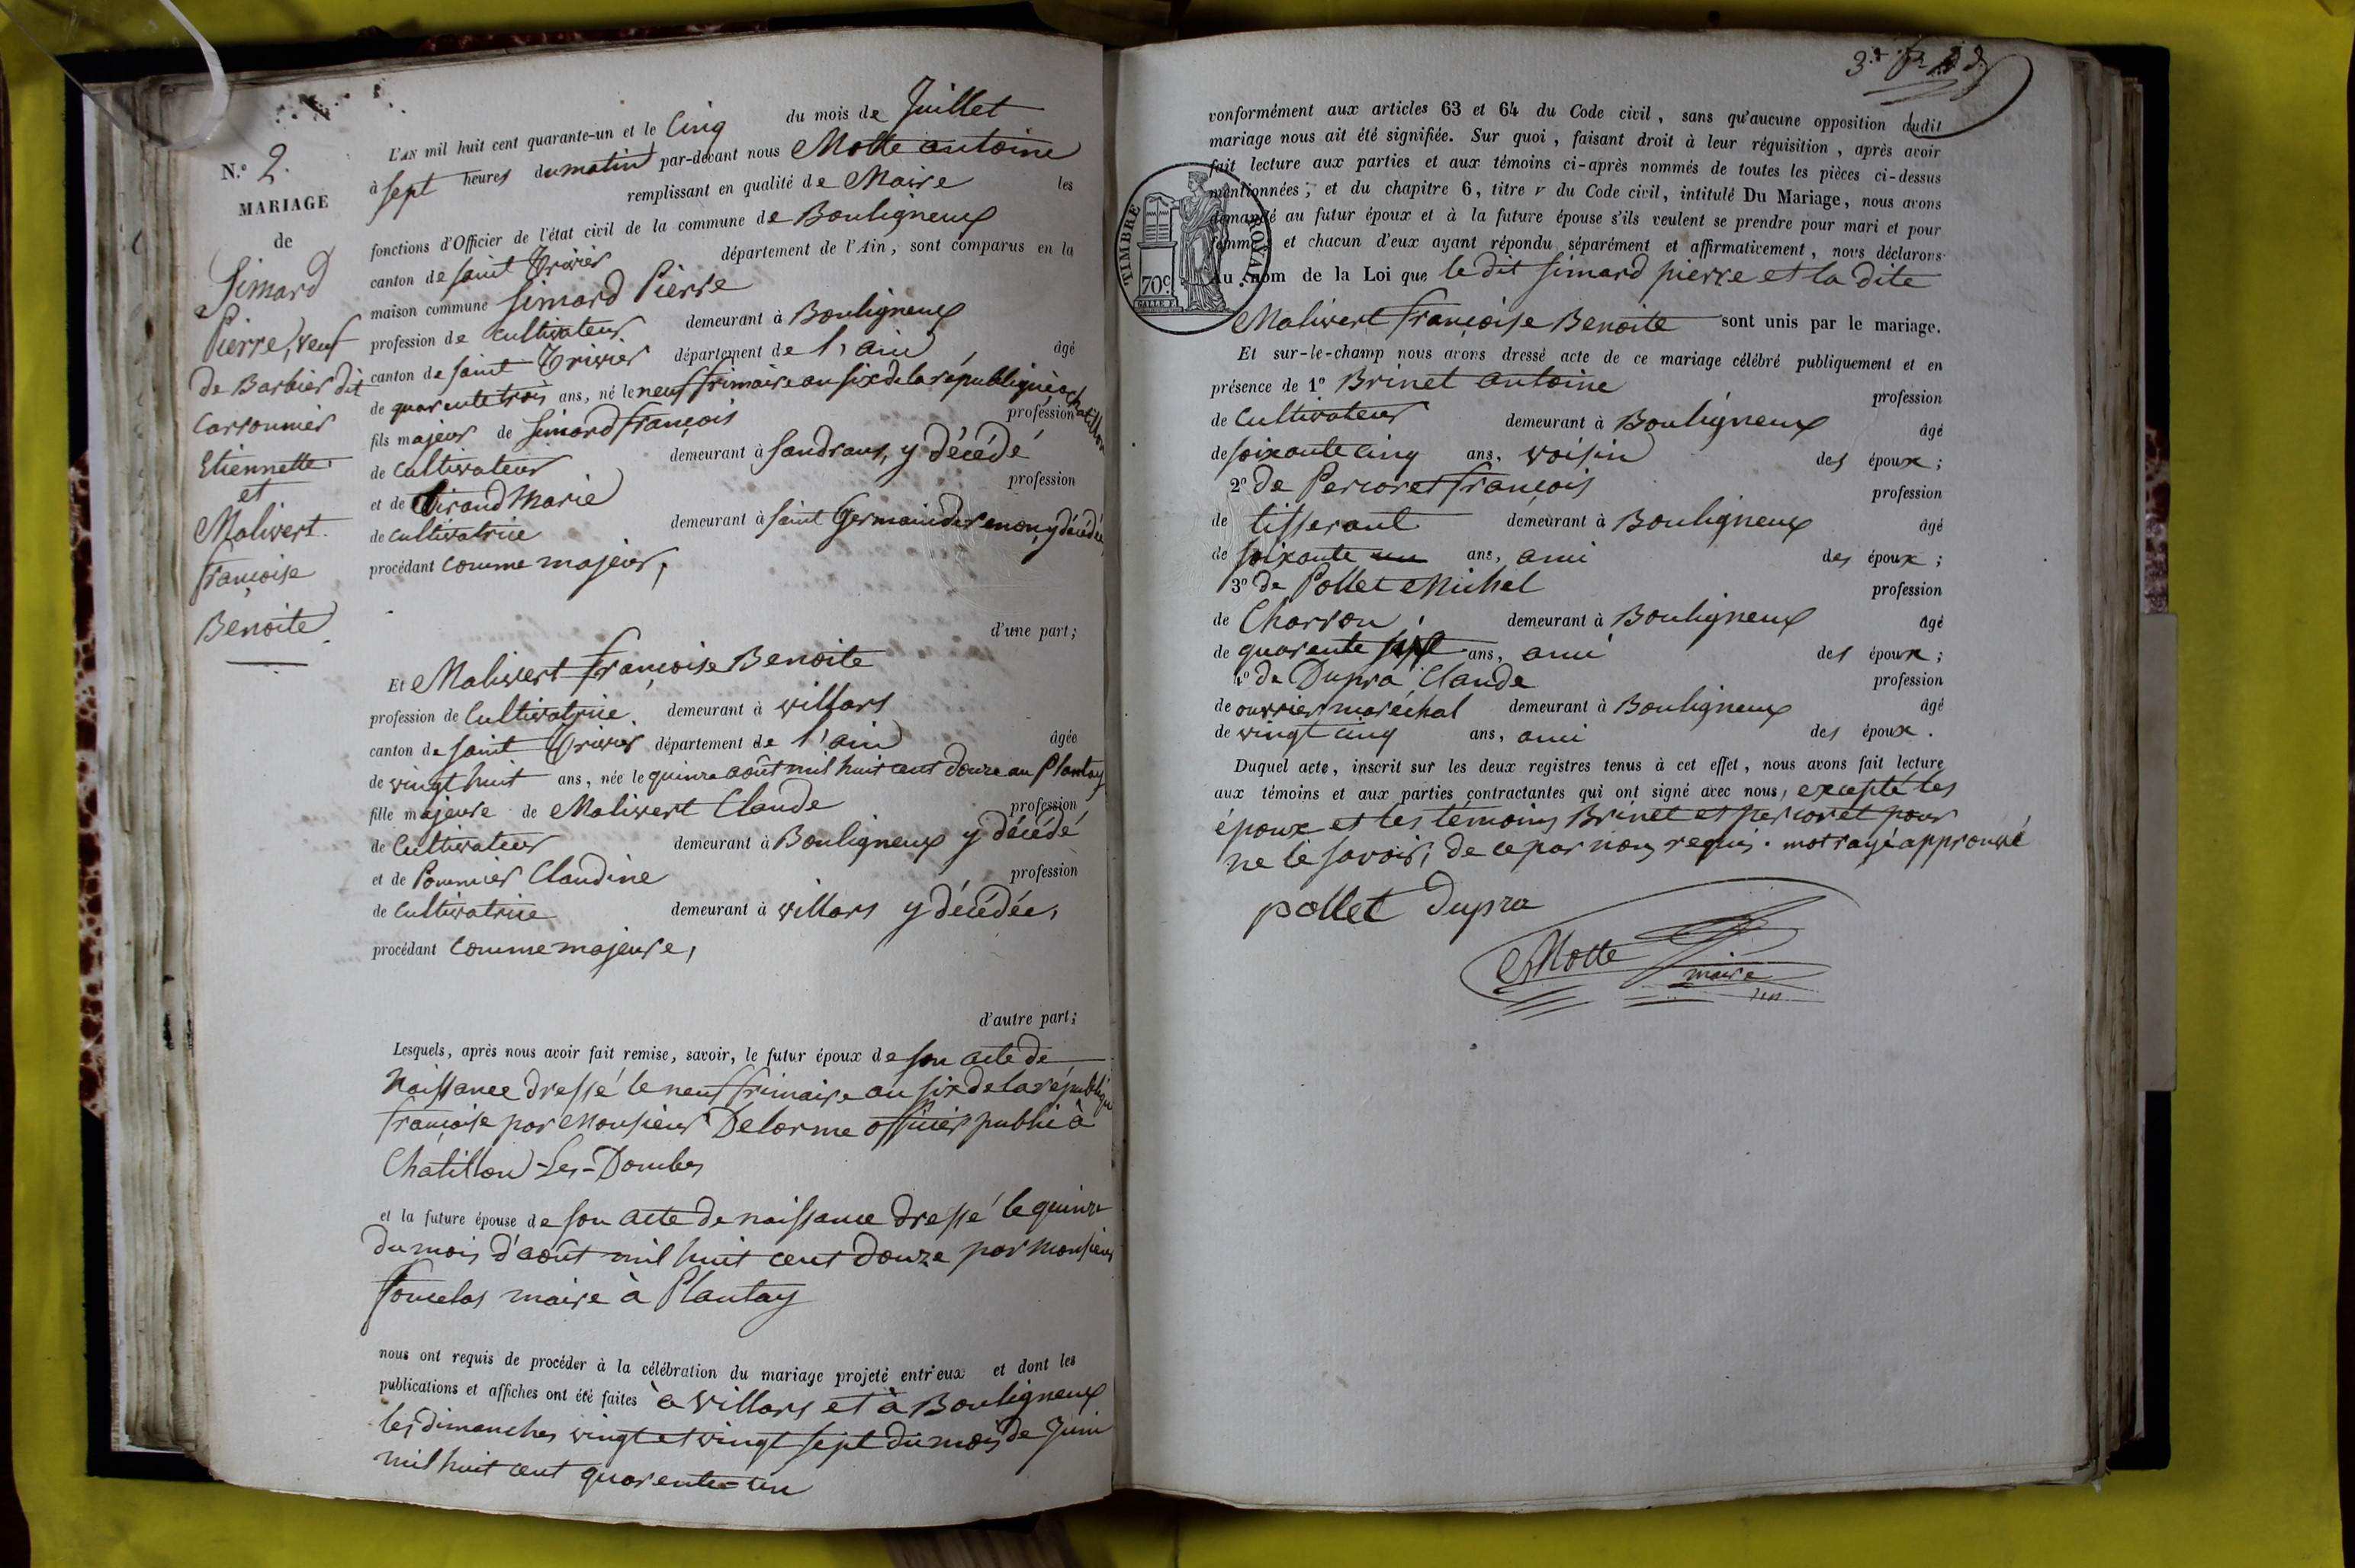 N.° 2.
MARIAGE
de
Simard
Pierre, veuf
de Barbier dit
Carronnier
Etiennette
et
Malivert
françoise
Benoite
L'AN mil huit cent quarante-un et le Cinq du mois de Juillet
à sept heures du matin par-devant nous Motte antoine
remplissant en qualité de Maire les
fonctions d'Officier de l'état civil de la commune de Bouligneux
canton de saint Trivier département de l'Ain, sont comparus en la
maison commune Simard Pierre
profession de Cultivateur demeurant à Bouligneux
canton de saint Trivier département de l'ain, âgé
de quarente trois ans, né le neuf frimaire an six de la république a chatillon
fils majeur de Simard françois profession
de Cultivateur demeurant à Sandrans, y décédé
et de Girand Marie profession
de Cultivatrice demeurant à saint Germain de renon, y décédée,
procédant comme majeur,
d'une part;
Et Malivert françoise Benoite
profession de Cultivatrice demeurant à villars
canton de saint Trivier département de l'ain âgée
de vingt huit ans, née le quinze août mil huit cent douze au Plantay
fille majeure de Malivert Claude profession
de Cultivateur demeurant à Bouligneux y décédé
et de Pommier Claudine profession
de Cultivatrice demeurant à villars y décédée,
procédant comme majeure,
d'autre part;
Lesquels, après nous avoir fait remise, savoir, le futur époux de son acte de
naissance dressé le neuf frimaire an six de la république
françoise par Monsieur Delorme officier public à
Chatillon-Les-Dombes
et la future épouse de son acte de naissance dressé le quinze
du mois d'août mil huit cent douze par Monsieur
maire à Plantay
nous ont requis de procéder à la célébration du mariage projeté entr'eux et dont les
publications et affiches ont été faites à villars et à Bouligneux
les dimanches vingt et vingt sept du mois de Juin
mil huit cent quarente-un
conformément aux articles 63 et 64 du Code civil, sans qu'aucune opposition dudit
mariage nous ait été signifiée. Sur quoi, faisant droit à leur réquisition, après avoir
fait lecture aux parties et aux témoins ci-après nommés de toutes les pièces ci-dessus
mentionnées; et du chapitre 6, titre v du Code civil, intitulé Du Mariage, nous avons
demandé au futur époux et à la future épouse s'ils veulent se prendre pour mari et pour
femme; et chacun d'eux ayant répondu séparément et affirmativement, nous déclarons
Au nom de la Loi que le dit simard pierre et la dite
Malivert françoise Benoite sont unis par le mariage.
TIMBRE ROYAL
70c.
Et sur-le-champ nous avons dressé acte de ce mariage célébré publiquement et en
présence de 1° Brinet antoine profession
de Cultivateur demeurant à Bouligneux âgé
de soixante cinq ans, voisin des époux;
2° de Percoret françois profession
de tisserant demeurant à Bouligneux âgé
de soixante un ans, ami des époux;
3° de Pollet Michel profession
de Charron, demeurant à Bouligneux âgé
de quarante sept ans, ami des époux;
4° de Dupra Claude profession
de ouvrier maréchal demeurant à Bouligneux âgé
de vingt cinq ans, ami des époux.
Duquel acte, inscrit sur les deux registres tenus à cet effet, nous avons fait lecture
aux témoins et aux parties contractantes qui ont signé avec nous, excepté les
époux et les témoins Brinet et percoret pour
ne le savoir, de ce par nous requis. mot rayé approuvé
pollet Dupra
Motte
maire